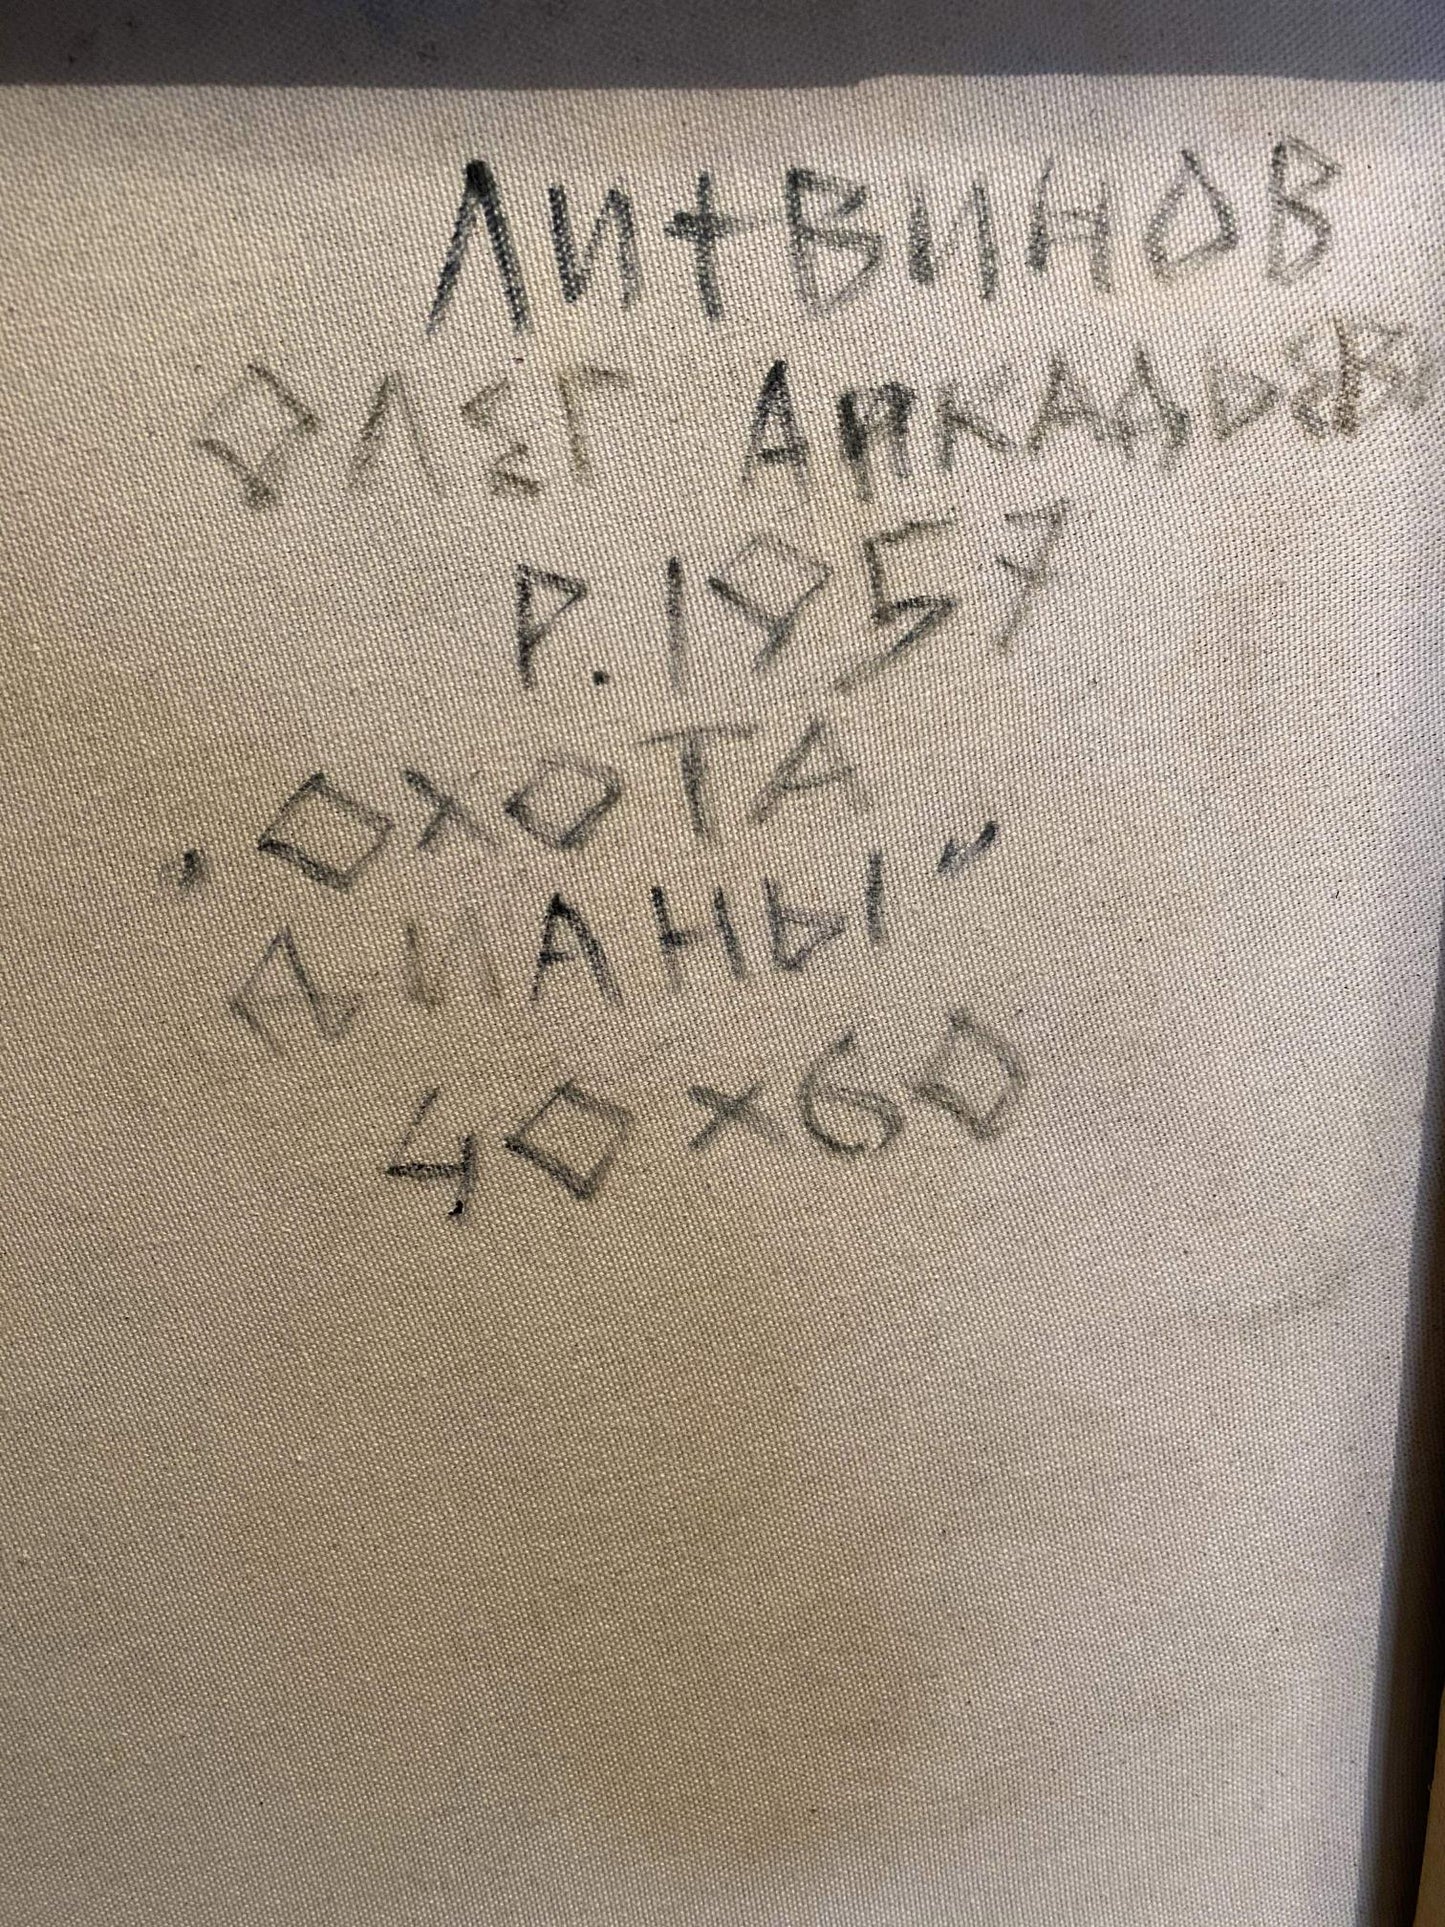 ЛИТВИНОВ
ОЛЕГ
Р. 1957
"ОХОТА
ДИАНЫ"
40×60